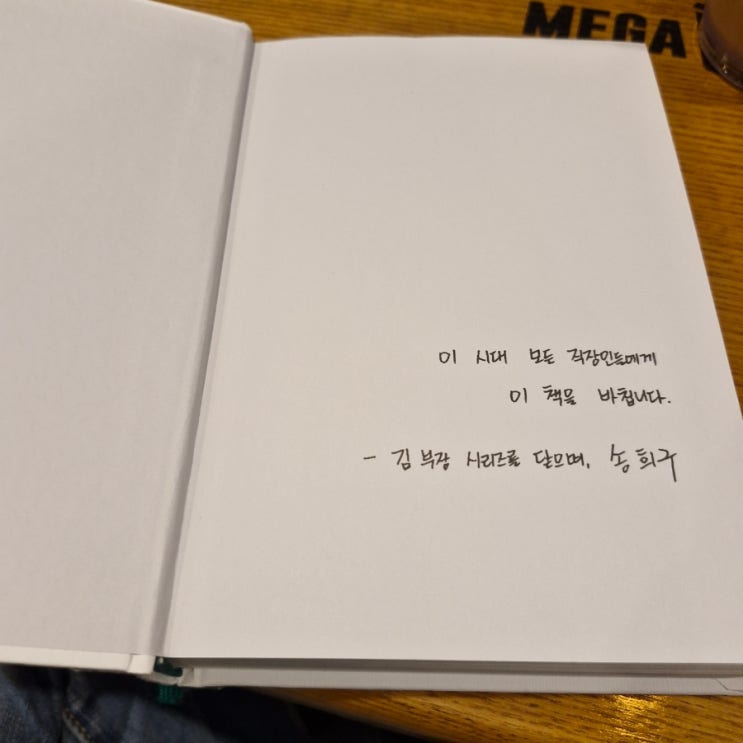 MEGA
이 시대 모든 직장인들에게
이 책을 바칩니다.
- 김 부장 시리즈를 닫으며, 송희구